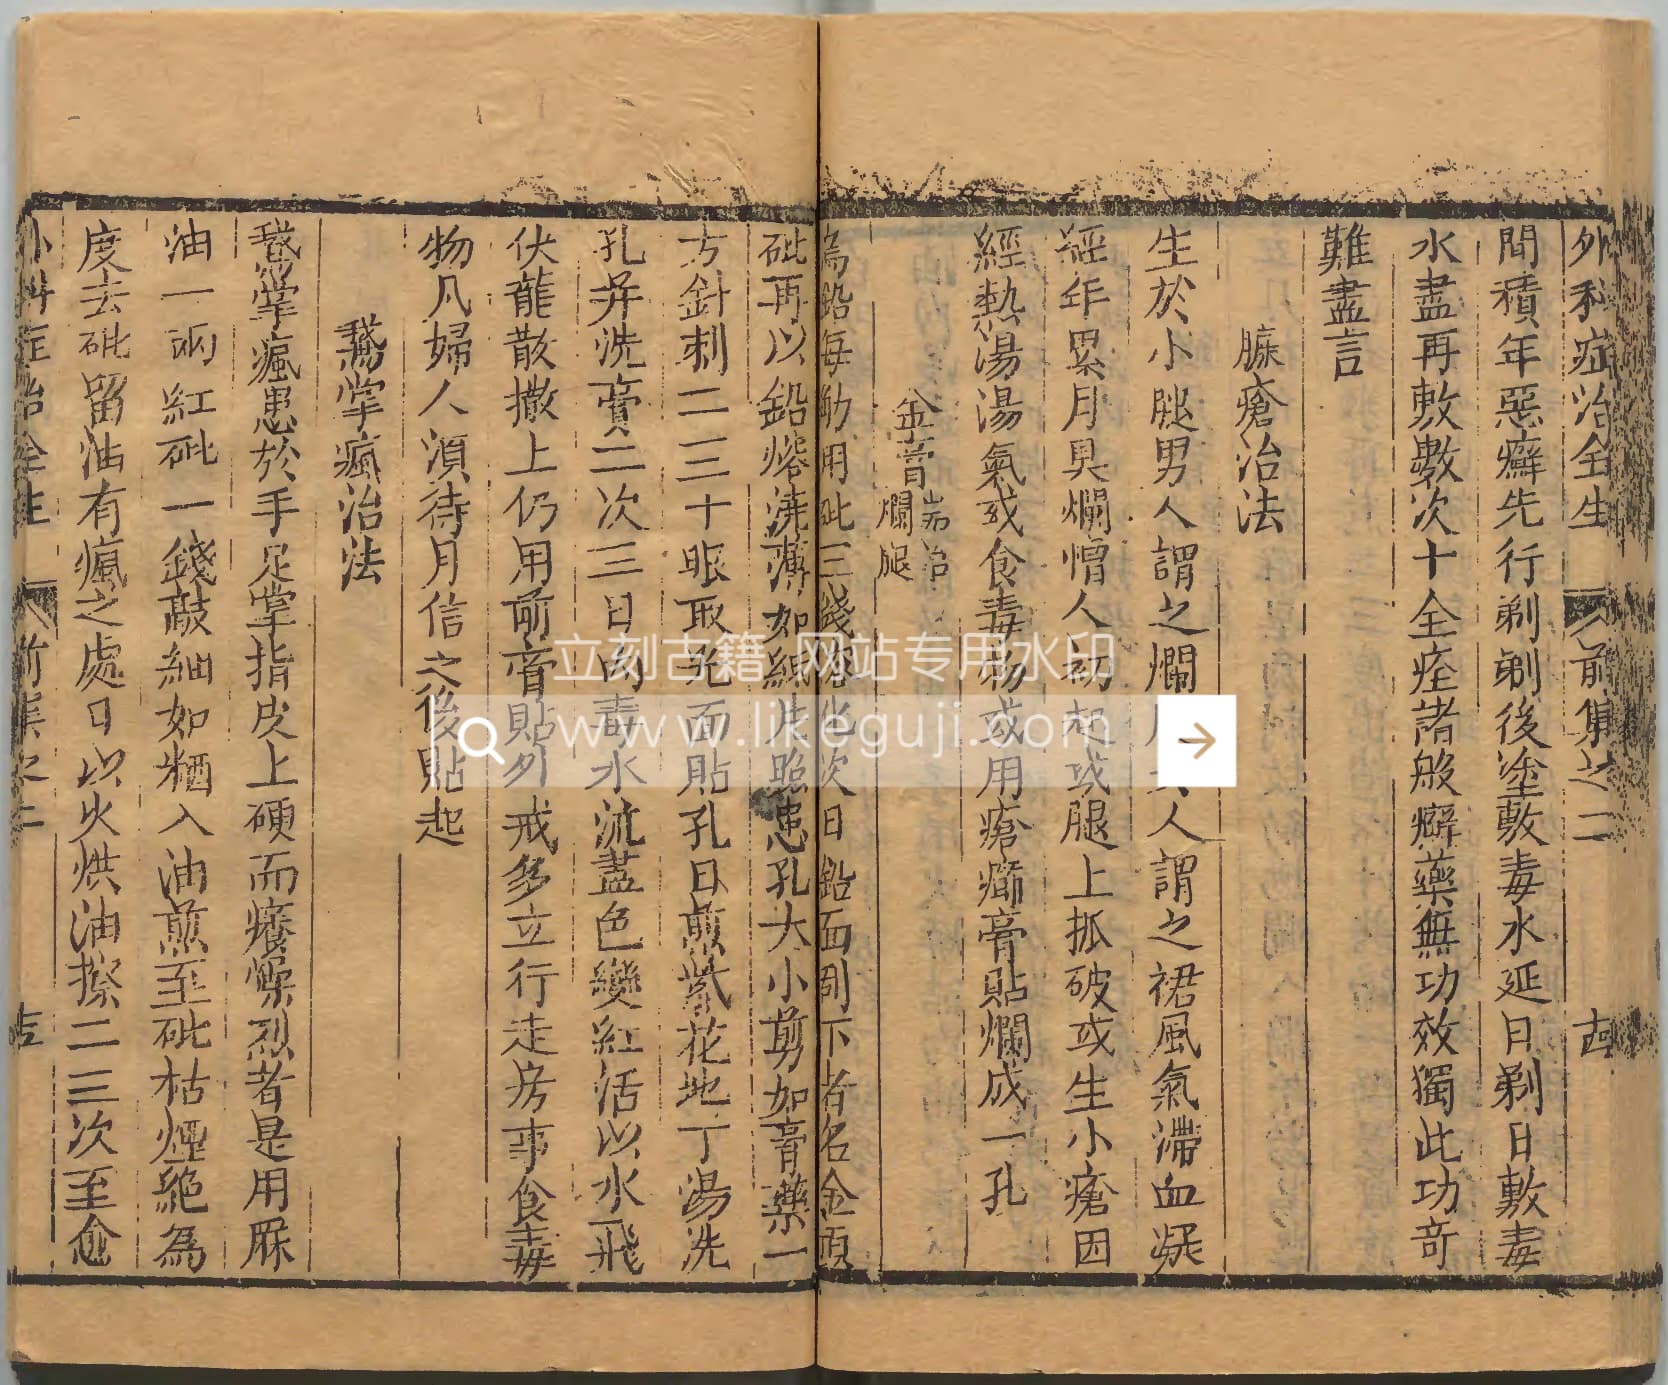 外科症治全生 前集之二 古
間積年惡癬先行剃剃後塗敷毒水延日剃日敷毒
水盡再敷數次十全痊諸般癬藥無功效獨此功奇
難盡言
臁瘡治法
生於小腿男人謂之爛 人謂之裙風氣滯血凝
經年累月臭爛憎人初起或腿上抓破或生小瘡因
經熱湯湯氣或食毒物或用瘡癤膏貼爛成一孔
金膏耑治爛腿
烏鉛每觔用砒三錢熔化次日鉛面刮下者名金頂
砒再以鉛熔澆薄如紙片照患孔大小剪如膏藥一
方針刺二三十眼取光面貼孔日煎紫花地丁湯洗
孔并洗膏二次三日內毒水流盡色變紅活以水飛
伏龍散撒上仍用前膏貼外戒多立行走房事食毒
物凡婦人須待月信之後貼起
鵞掌瘋治法
鵞掌瘋患於手足掌指皮上硬而癢燥烈者是用麻
油一兩紅砒一錢敲細如粞入油煎至砒枯煙絕為
度去砒留油有瘋之處日以火烘油擦二三次至愈
外科症治全生 前集之二
立刻古籍 网站专用水印
www.likeguji.com